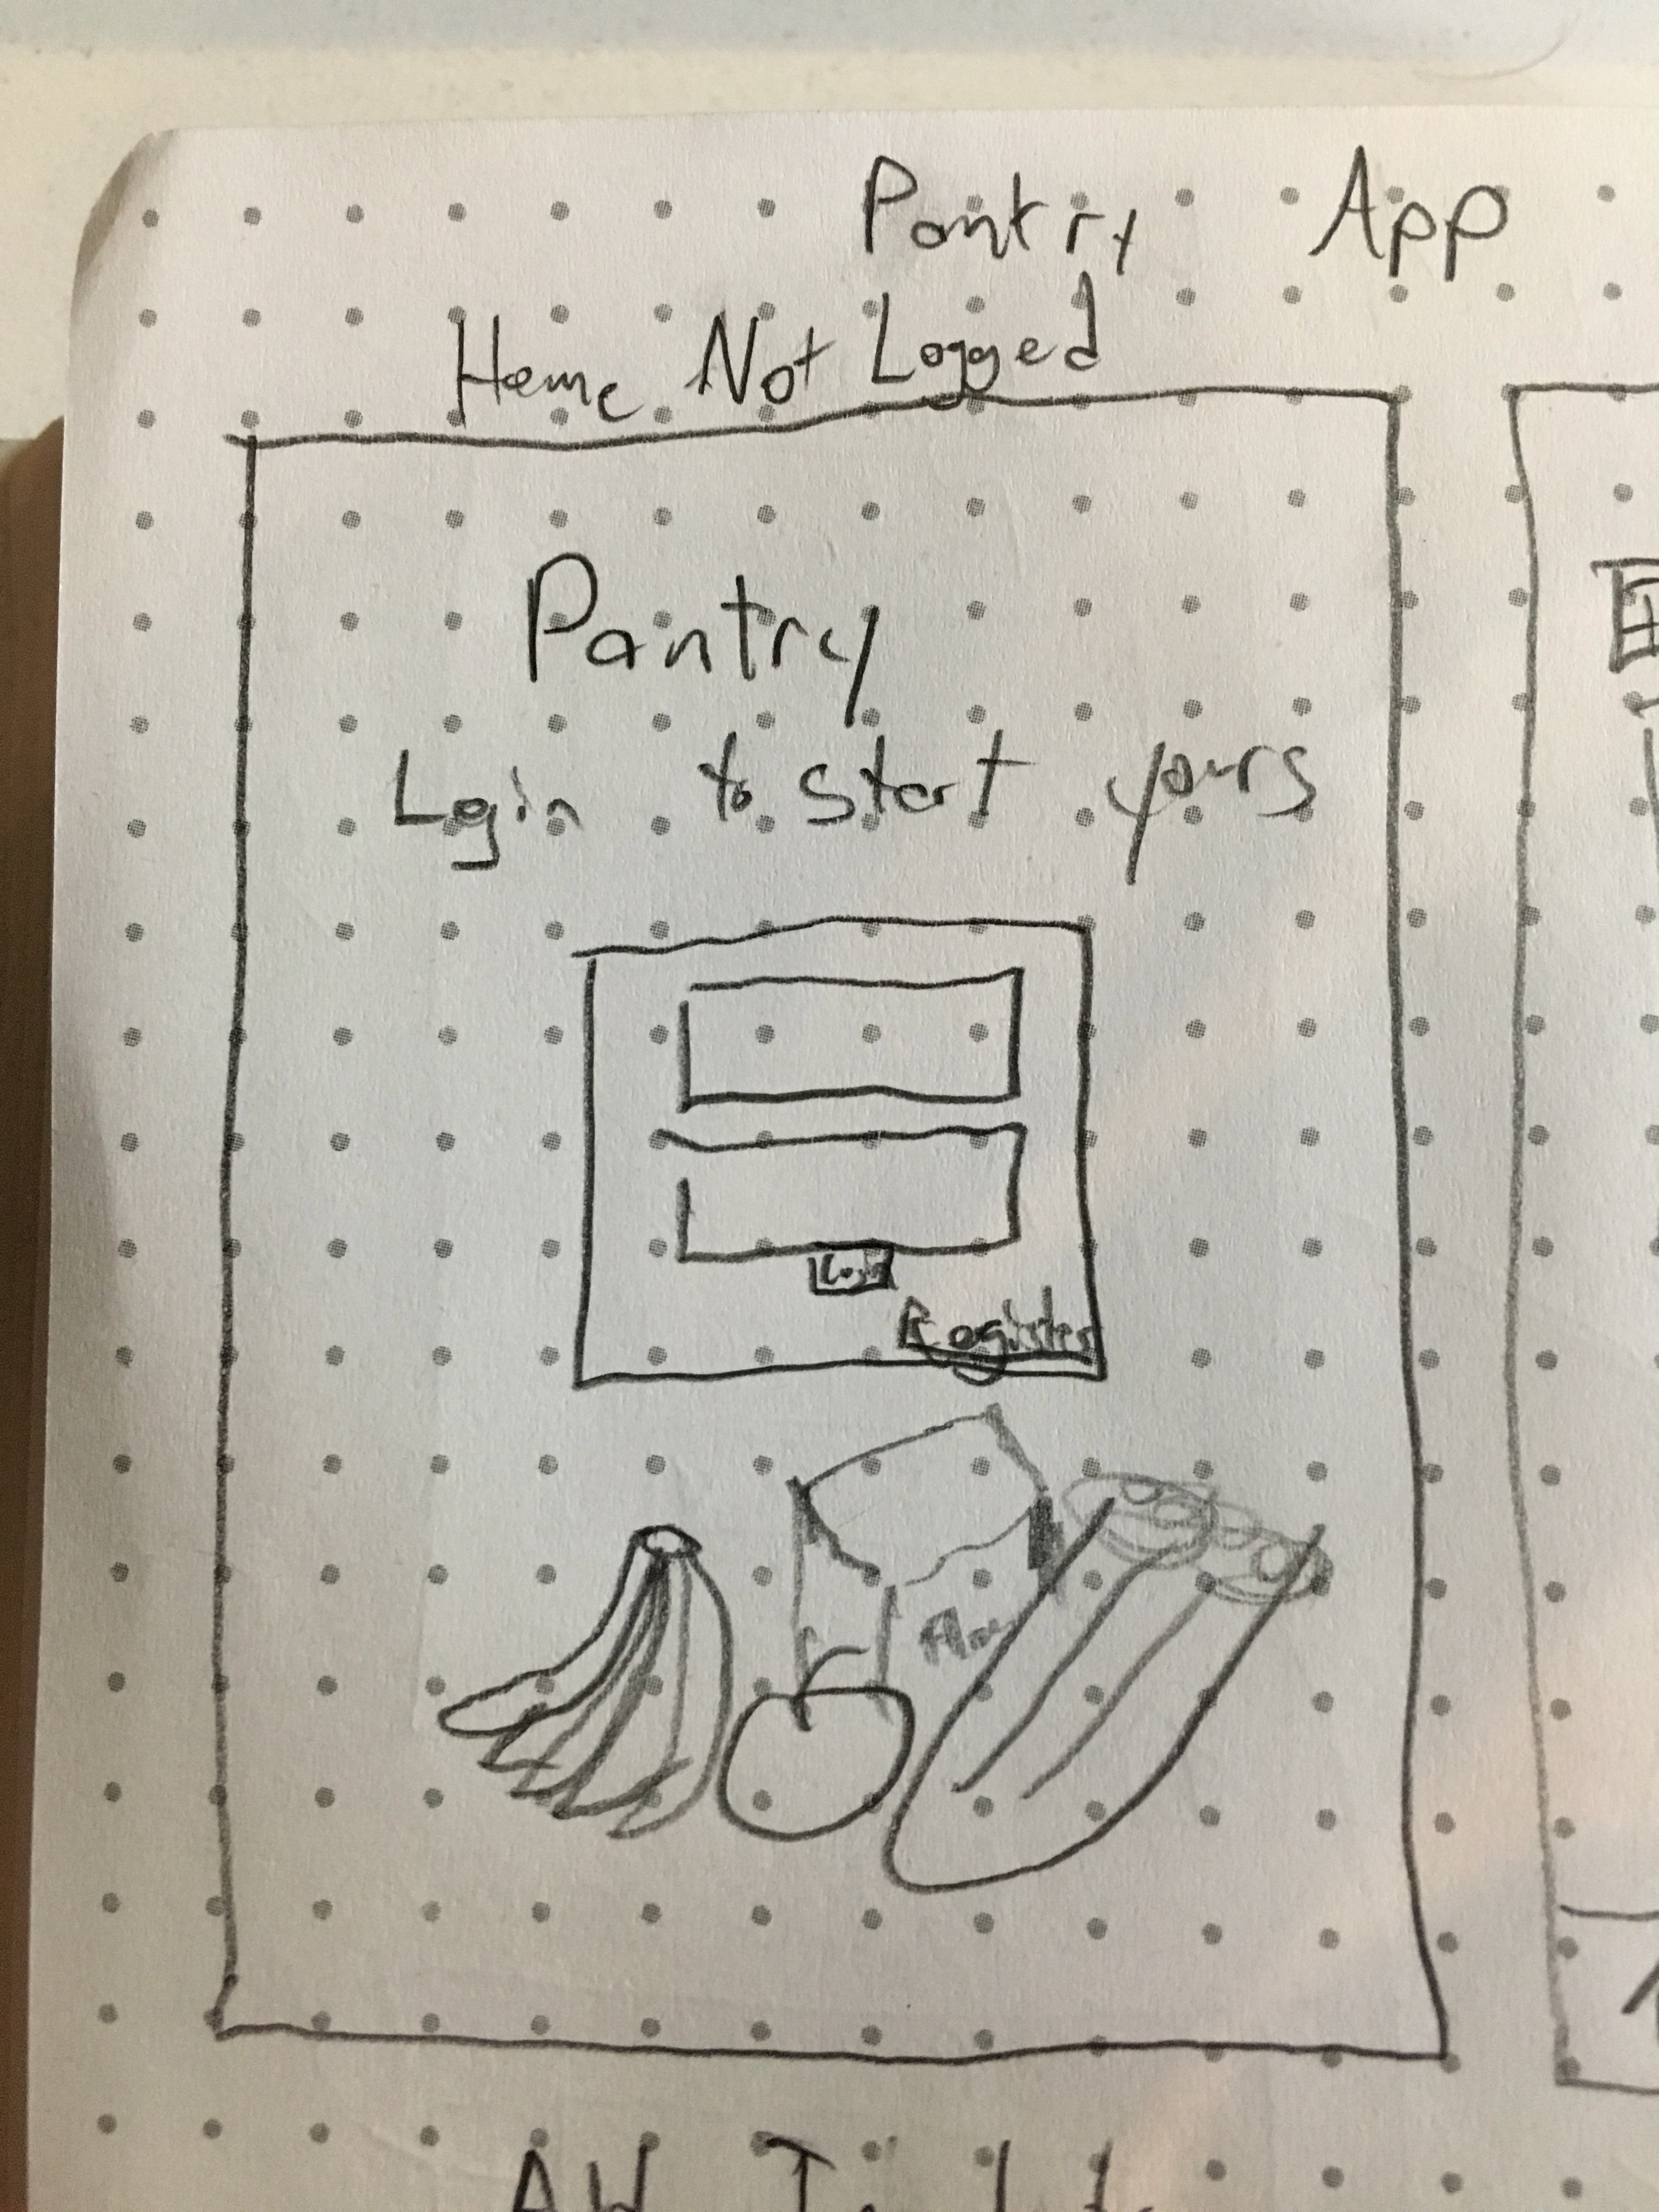 Pantry App
Home Not Logged
Pantry
Login to start yours
Login
Register